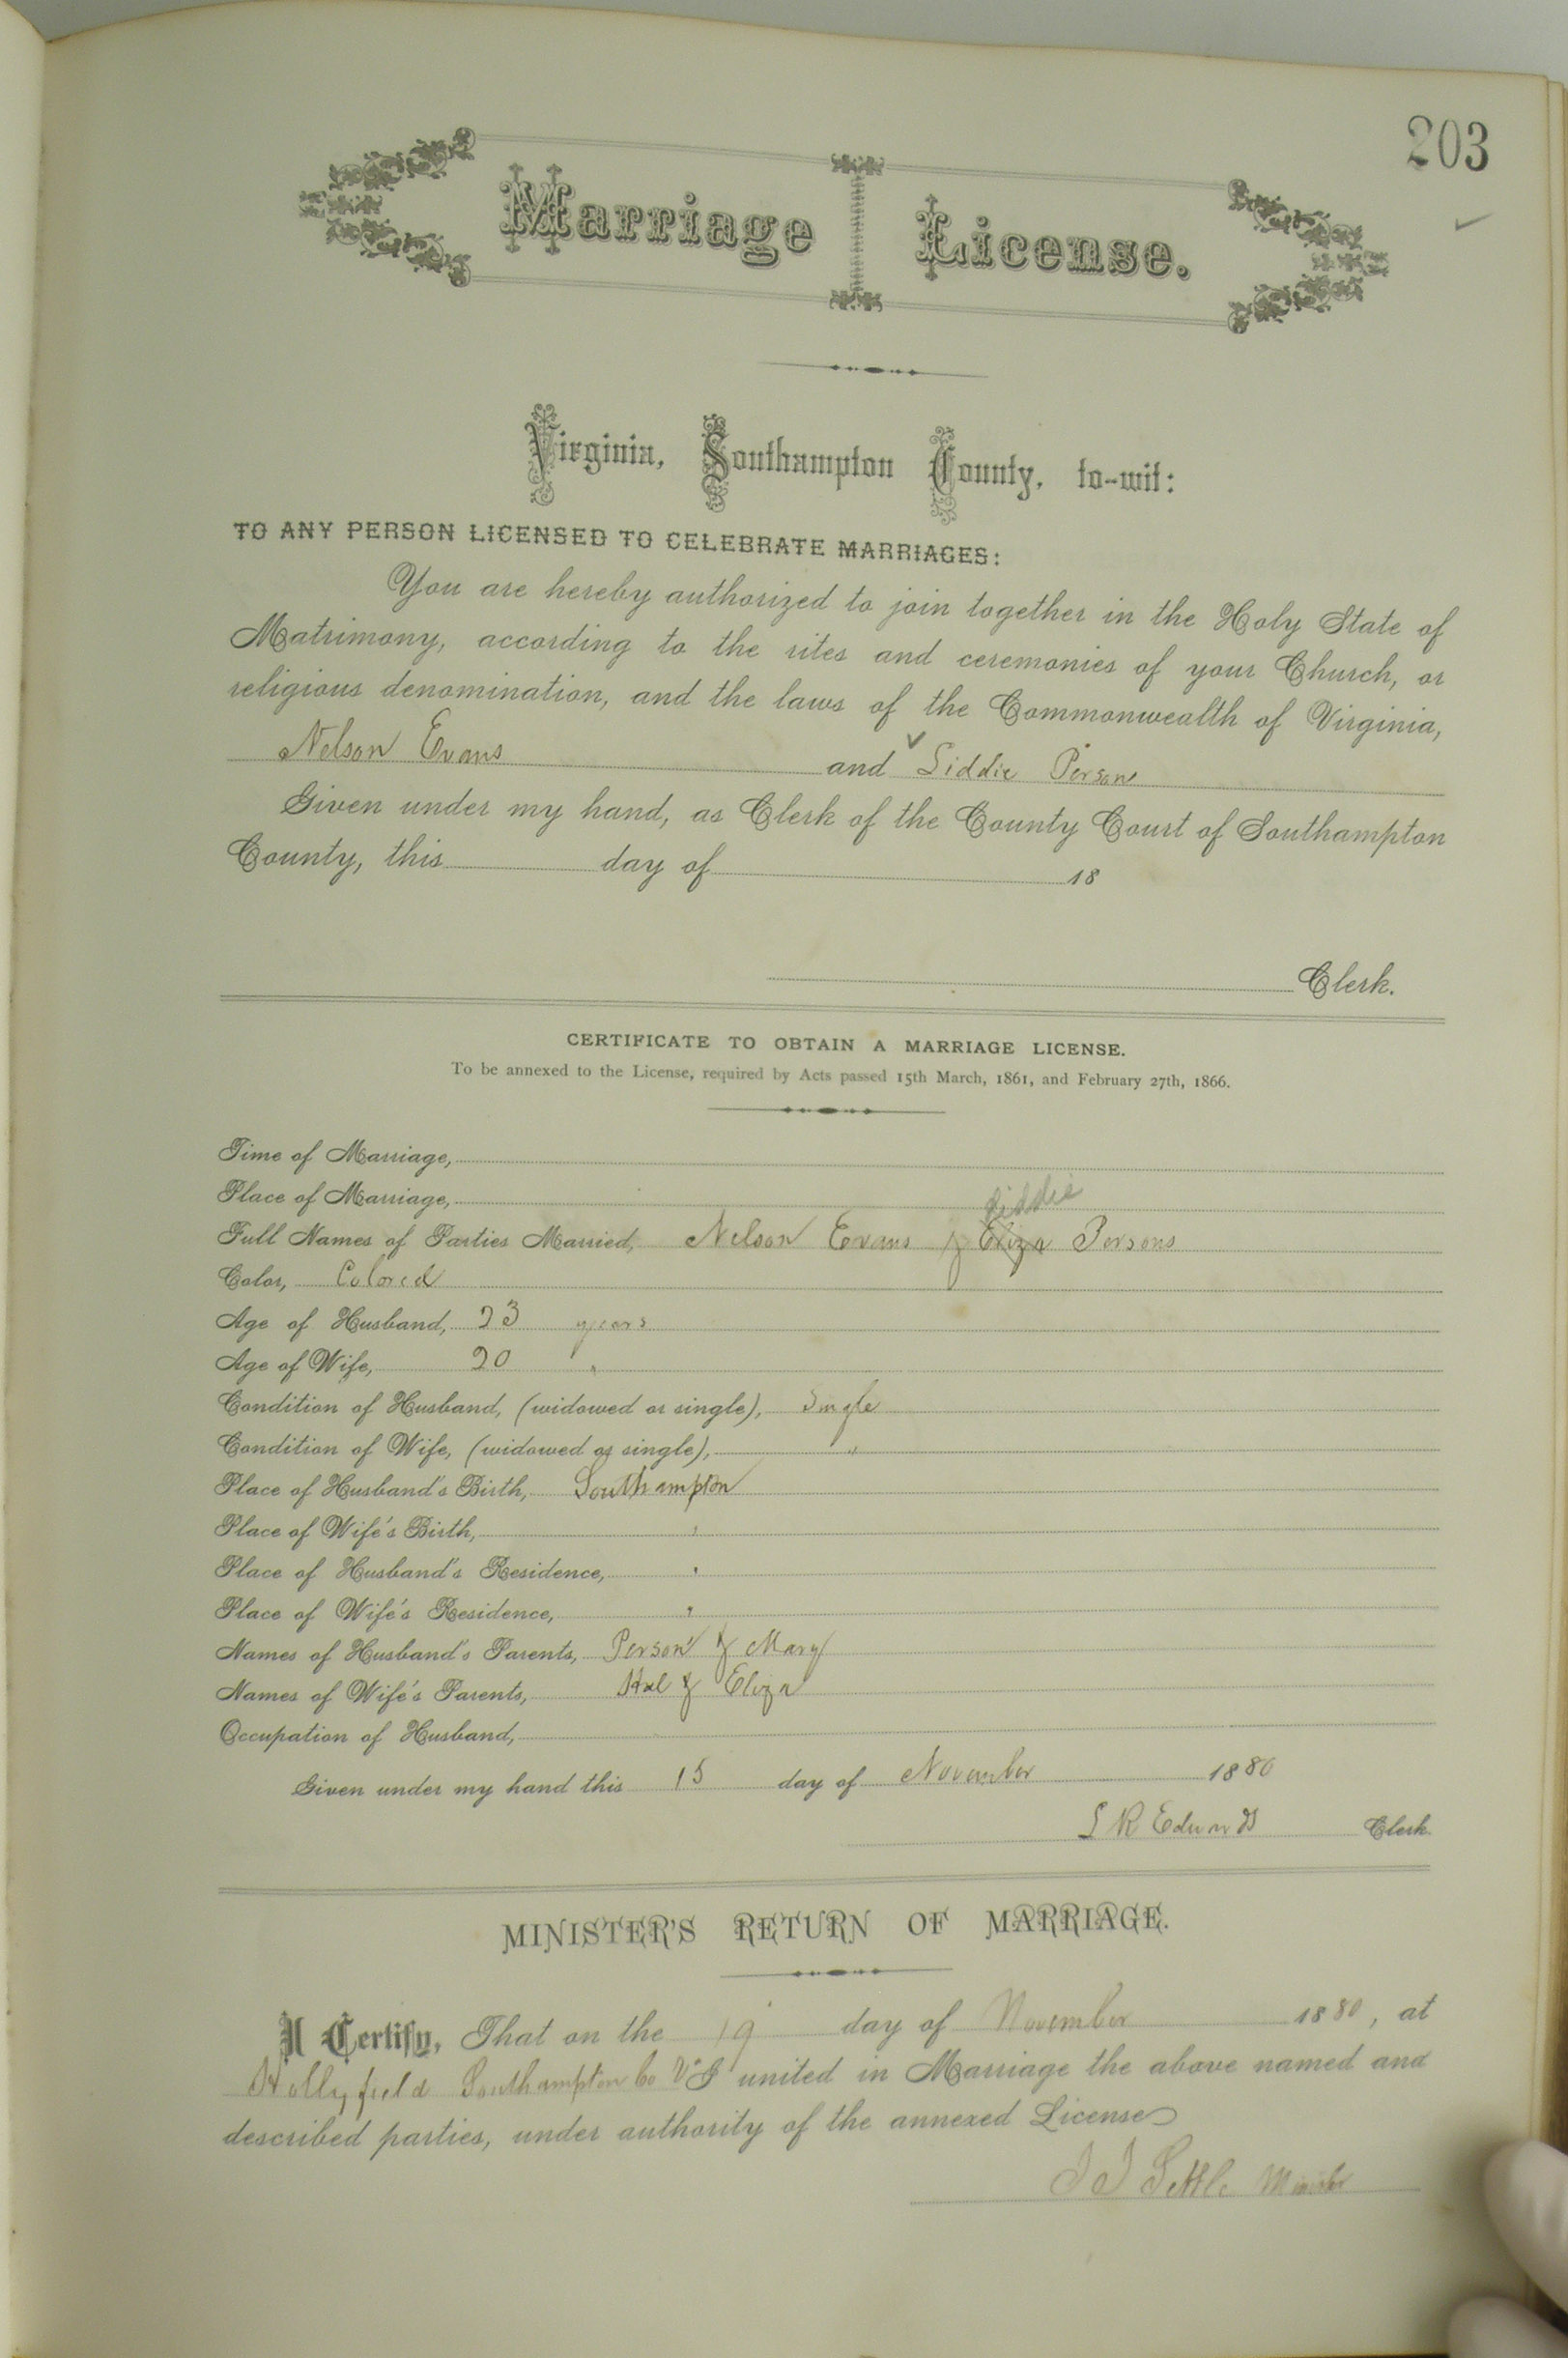 203
Marriage License.
Virginia, Southampton County, to-wit:
TO ANY PERSON LICENSED TO CELEBRATE MARRIAGES:
You are hereby authorized to join together in the Holy State of
Matrimony, according to the rites and ceremonies of your Church, or
religious denomination, and the laws of the Commonwealth of Virginia,
Nelson Evans and Liddie Person
Given under my hand, as Clerk of the County Court of Southampton
County, this day of 18
Clerk.
CERTIFICATE TO OBTAIN A MARRIAGE LICENSE.
To be annexed to the License, required by Acts passed 15th March, 1861, and February 27th, 1866.
Time of Marriage,
Place of Marriage,
Liddie
Full Names of Parties Married, Nelson Evans & Eliza Persons
Color, Colored
Age of Husband, 23 years
Age of Wife, 20 "
Condition of Husband, (widowed or single), Single
Condition of Wife, (widowed or single), "
Place of Husband's Birth, Southampton
Place of Wife's Birth, "
Place of Husband's Residence, "
Place of Wife's Residence, "
Names of Husband's Parents, Person & Mary
Names of Wife's Parents, Hal & Eliza
Occupation of Husband,
Given under my hand this 15 day of November 1880
L R Edwards Clerk.
MINISTER'S RETURN OF MARRIAGE.
I Certify, That on the 19 day of November 1880, at
Hollyfield Southampton Co Va united in Marriage the above named and
described parties, under authority of the annexed License
Settle Minister